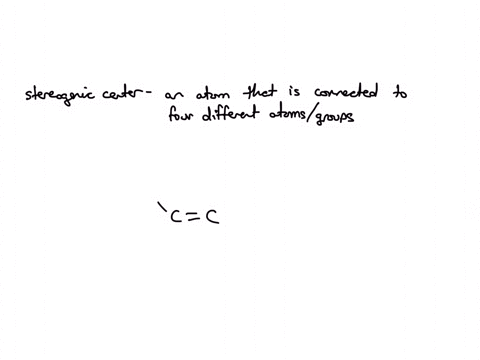 stereogenic center - an atom that is connected to
four different atoms/groups
C=C